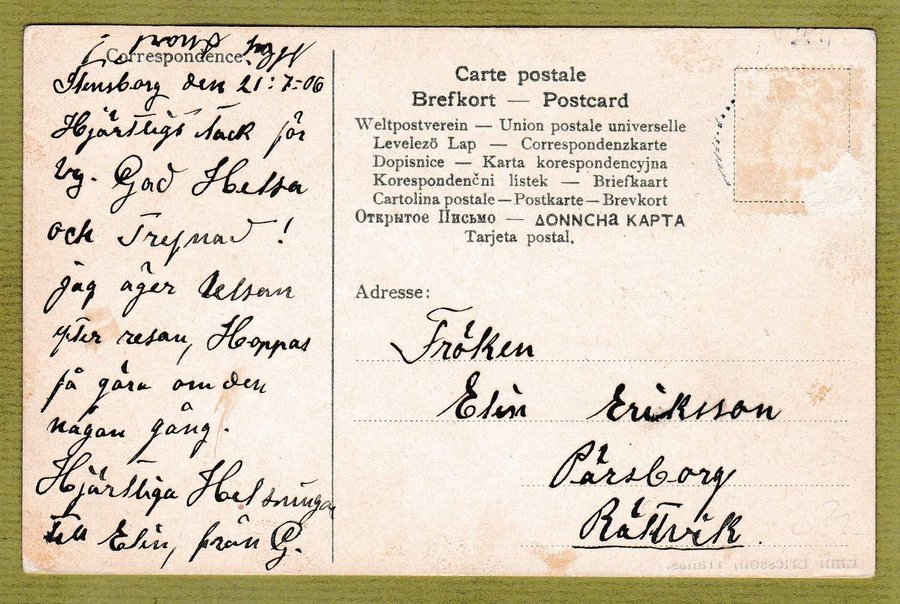 Correspondence.
Stensborg den 21:7-06
Hjärtligt tack för
vy. God Helsa
och Trefnad!
jag äger helsan
efter resan, Hoppas
få göra om den
någan gång.
Hjärtliga Helsningar
till Elin, från G.
Carte postale
Brefkort — Postcard
Weltpostverein — Union postale universelle
Levelező Lap — Correspondenzkarte
Dopisnice — Karta korespondencyjna
Korespondenčni listek — Briefkaart
Cartolina postale — Postkarte — Brevkort
Открытое Письмо — ΔΟΝΝCHа КАРТА
Tarjeta postal.
Adresse:
Fröken
Elin Eriksson
Pärsborg
Rättvik.